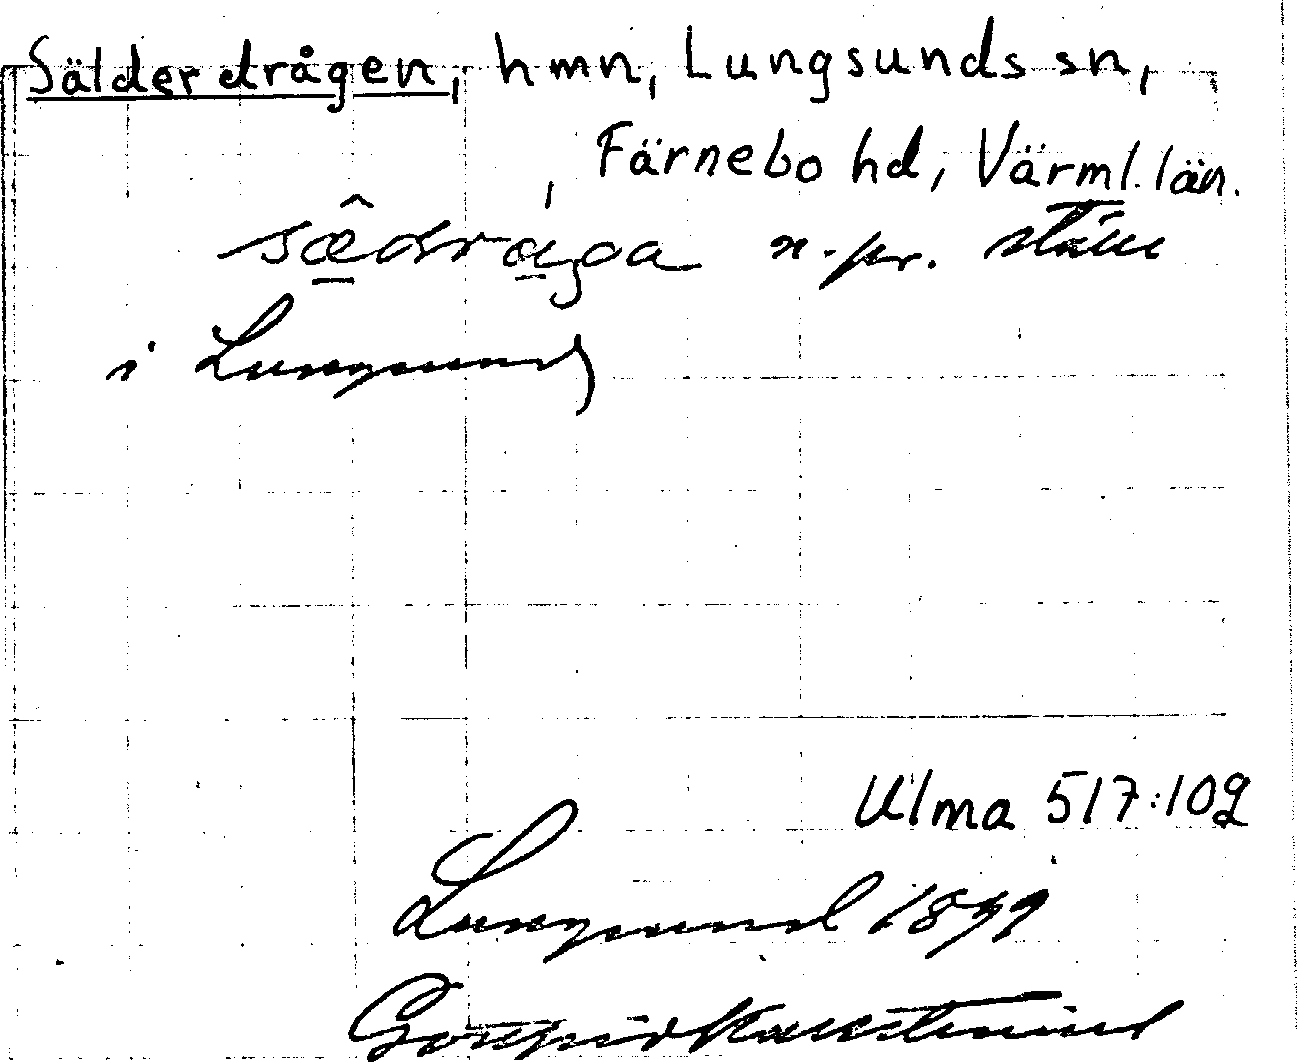 Sälderdrågen, hmn, Lungsunds sn,
Färnebo hd, Värml. län.
sædråga n. pr. ställe
i Lungsund
Ulma 517:102
Lungsund 1899
Gottfrid Kallstenius